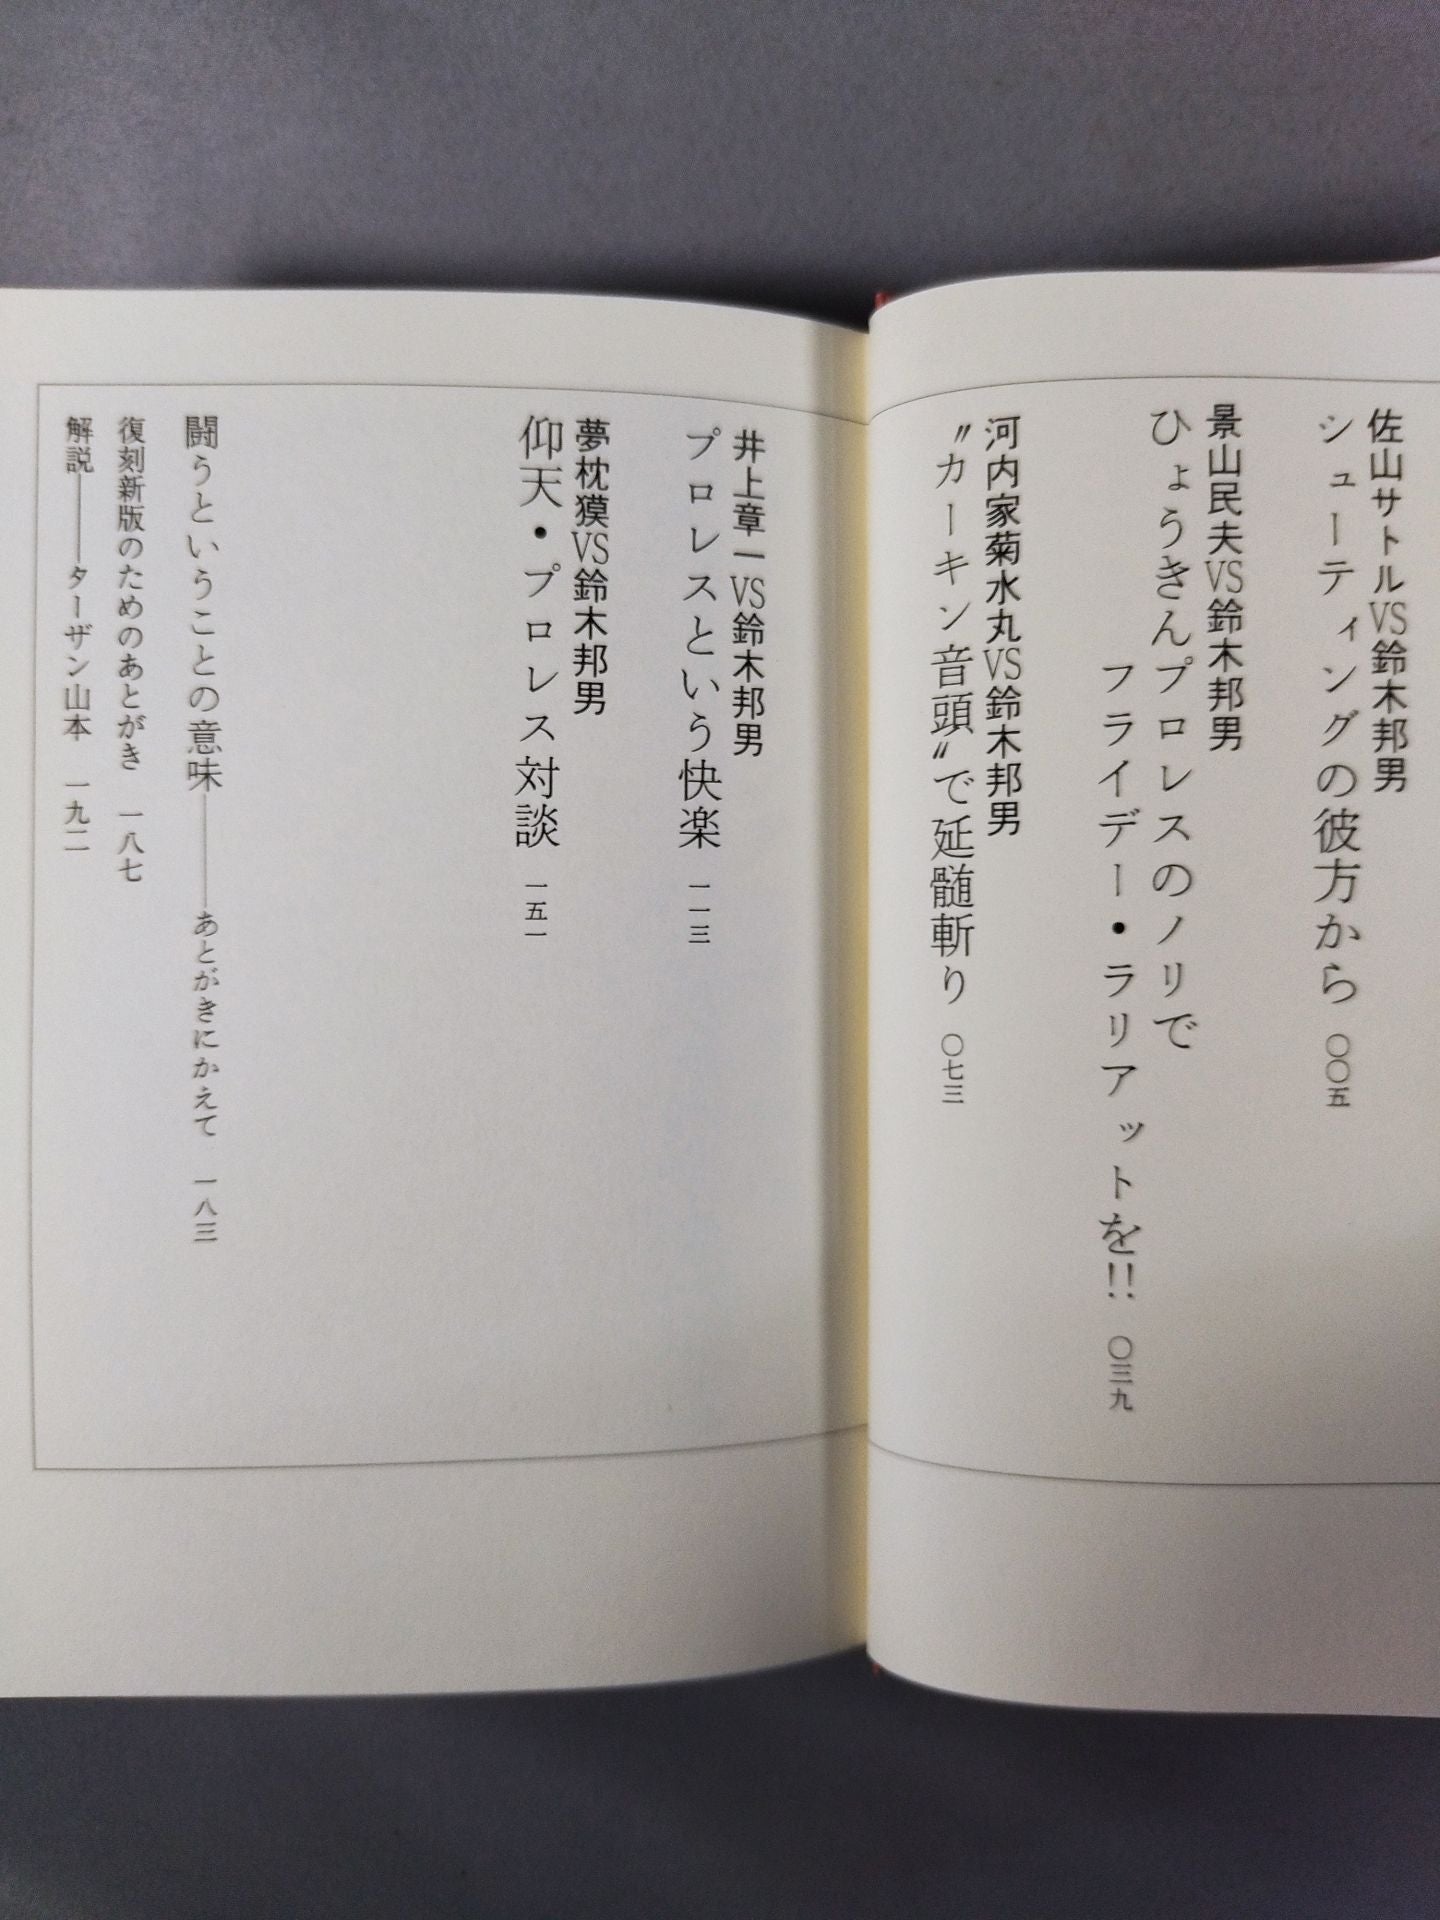 佐山サトルVS鈴木邦男
シューティングの彼方から 〇〇五
景山民夫VS鈴木邦男
ひょうきんプロレスのノリで
フライデー・ラリアットを!! 〇三九
河内家菊水丸VS鈴木邦男
〝カーキン音頭〟で延髄斬り 〇七三
井上章一VS鈴木邦男
プロレスという快楽 一一三
夢枕獏VS鈴木邦男
仰天・プロレス対談 一五一
闘うということの意味――あとがきにかえて 一八三
復刻新版のためのあとがき 一八七
解説――ターザン山本 一九二